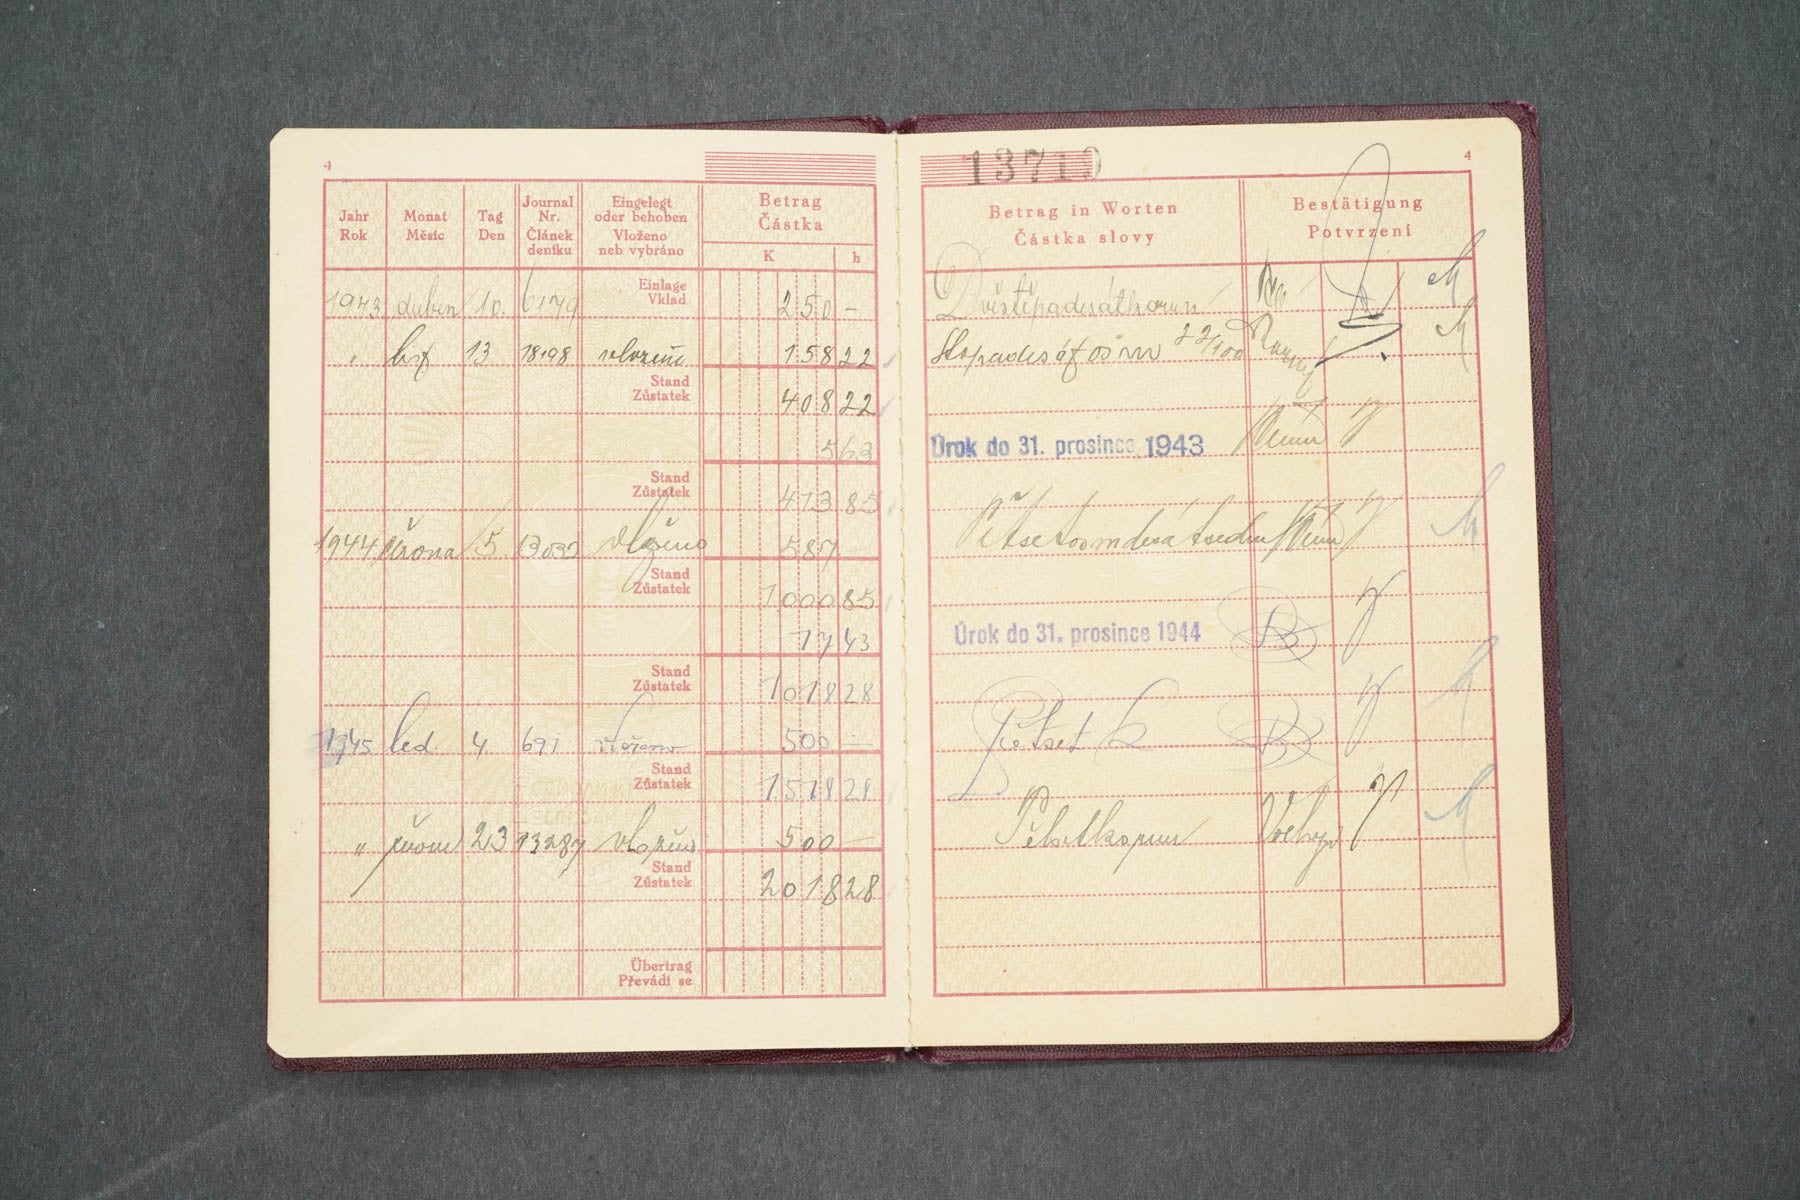 4
Jahr
Rok
Monat
Měsíc
Tag
Den
Journal
Nr.
Článek
deníku
Eingelegt
oder behoben
Vloženo
neb vybráno
Betrag
Částka
K h
1943 duben 10. 6179 Einlage
Vklad 250 —
" 13 18198 158 22
Stand
Zůstatek 408 22
5 63
Stand
Zůstatek 413 85
1944 června 5 13032 vloženo 587 —
Stand
Zůstatek 1000 85
17 43
Stand
Zůstatek 1018 28
1945 led. 4. 691 vloženo 500 —
Stand
Zůstatek 1518 28
" 23 13287 vloženo 500 —
Stand
Zůstatek 2018 28
Übertrag
Převádí se
13719
4
Betrag in Worten
Částka slovy
Bestätigung
Potvrzení
Dvěstěpadesátkorun
Stopadesátosm 22/100
Úrok do 31. prosince 1943
Pětsetosmdesátsedm
Úrok do 31. prosince 1944
Pětset
Pětsetkorun